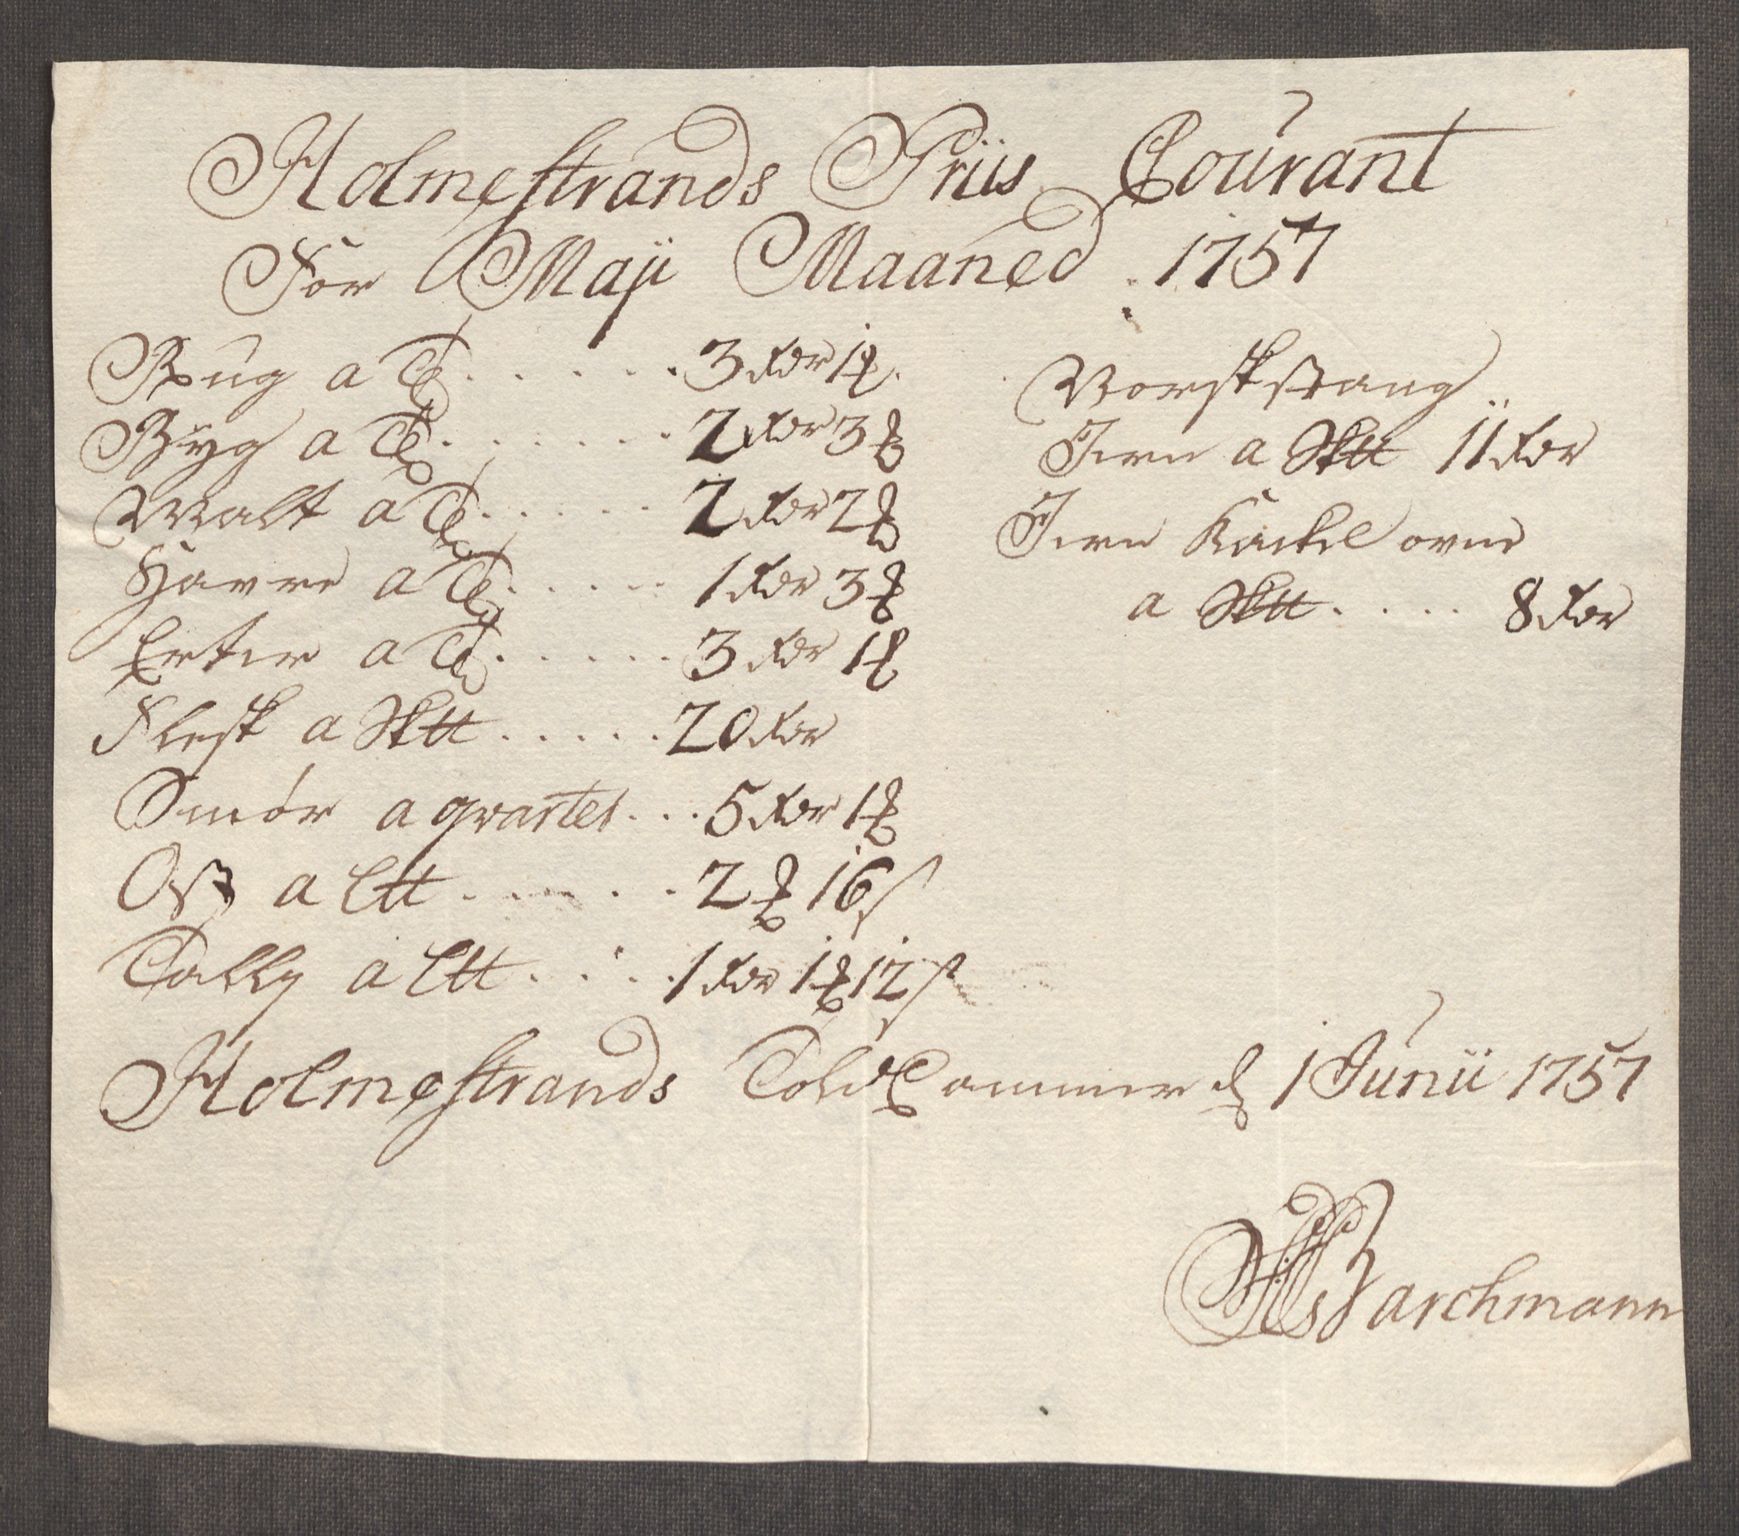 Holmestrands Priis Courant
For Maji Maaned 1757
Rug a Td. . . . . . 3 rdr 1 ꝑ.
Byg a Tde. . . . . . . 2 rdr 3 ꝑ
Malt a Tde. . . . . . 2 rdr 2 ꝑ
Havre a Tde. . . . . . 1 rdr 3 ꝑ
Erter a Td. . . . . . 3 rdr 1 ꝑ
Flesk a Sktt . . . . . 20 rdr
Smör a qvartel . . . 5 rdr 1 ꝑ
Ost a Ltt . . . . . 2 ꝑ 16 s
Tallg a Ltt . . . . 1 rdr 1 ꝑ 12 s
Norsk stang
Jern a Sktt 11 rdr
Jern Kackelovne
a Sktt . . . . 8 rdr
Holmestrands Told Cammer d 1 Junii 1757
Barchmann